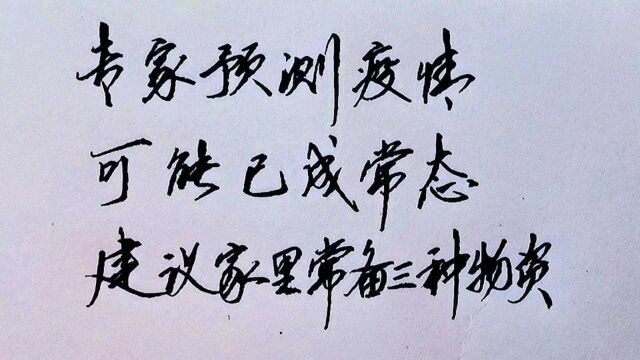 专家预测疫情
可能已成常态
建议家里常备三种物资